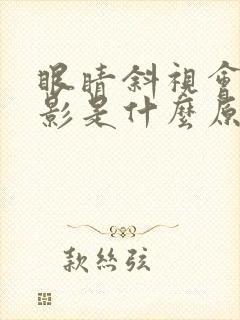 眼睛斜視會
影是什麼原
款絲弦